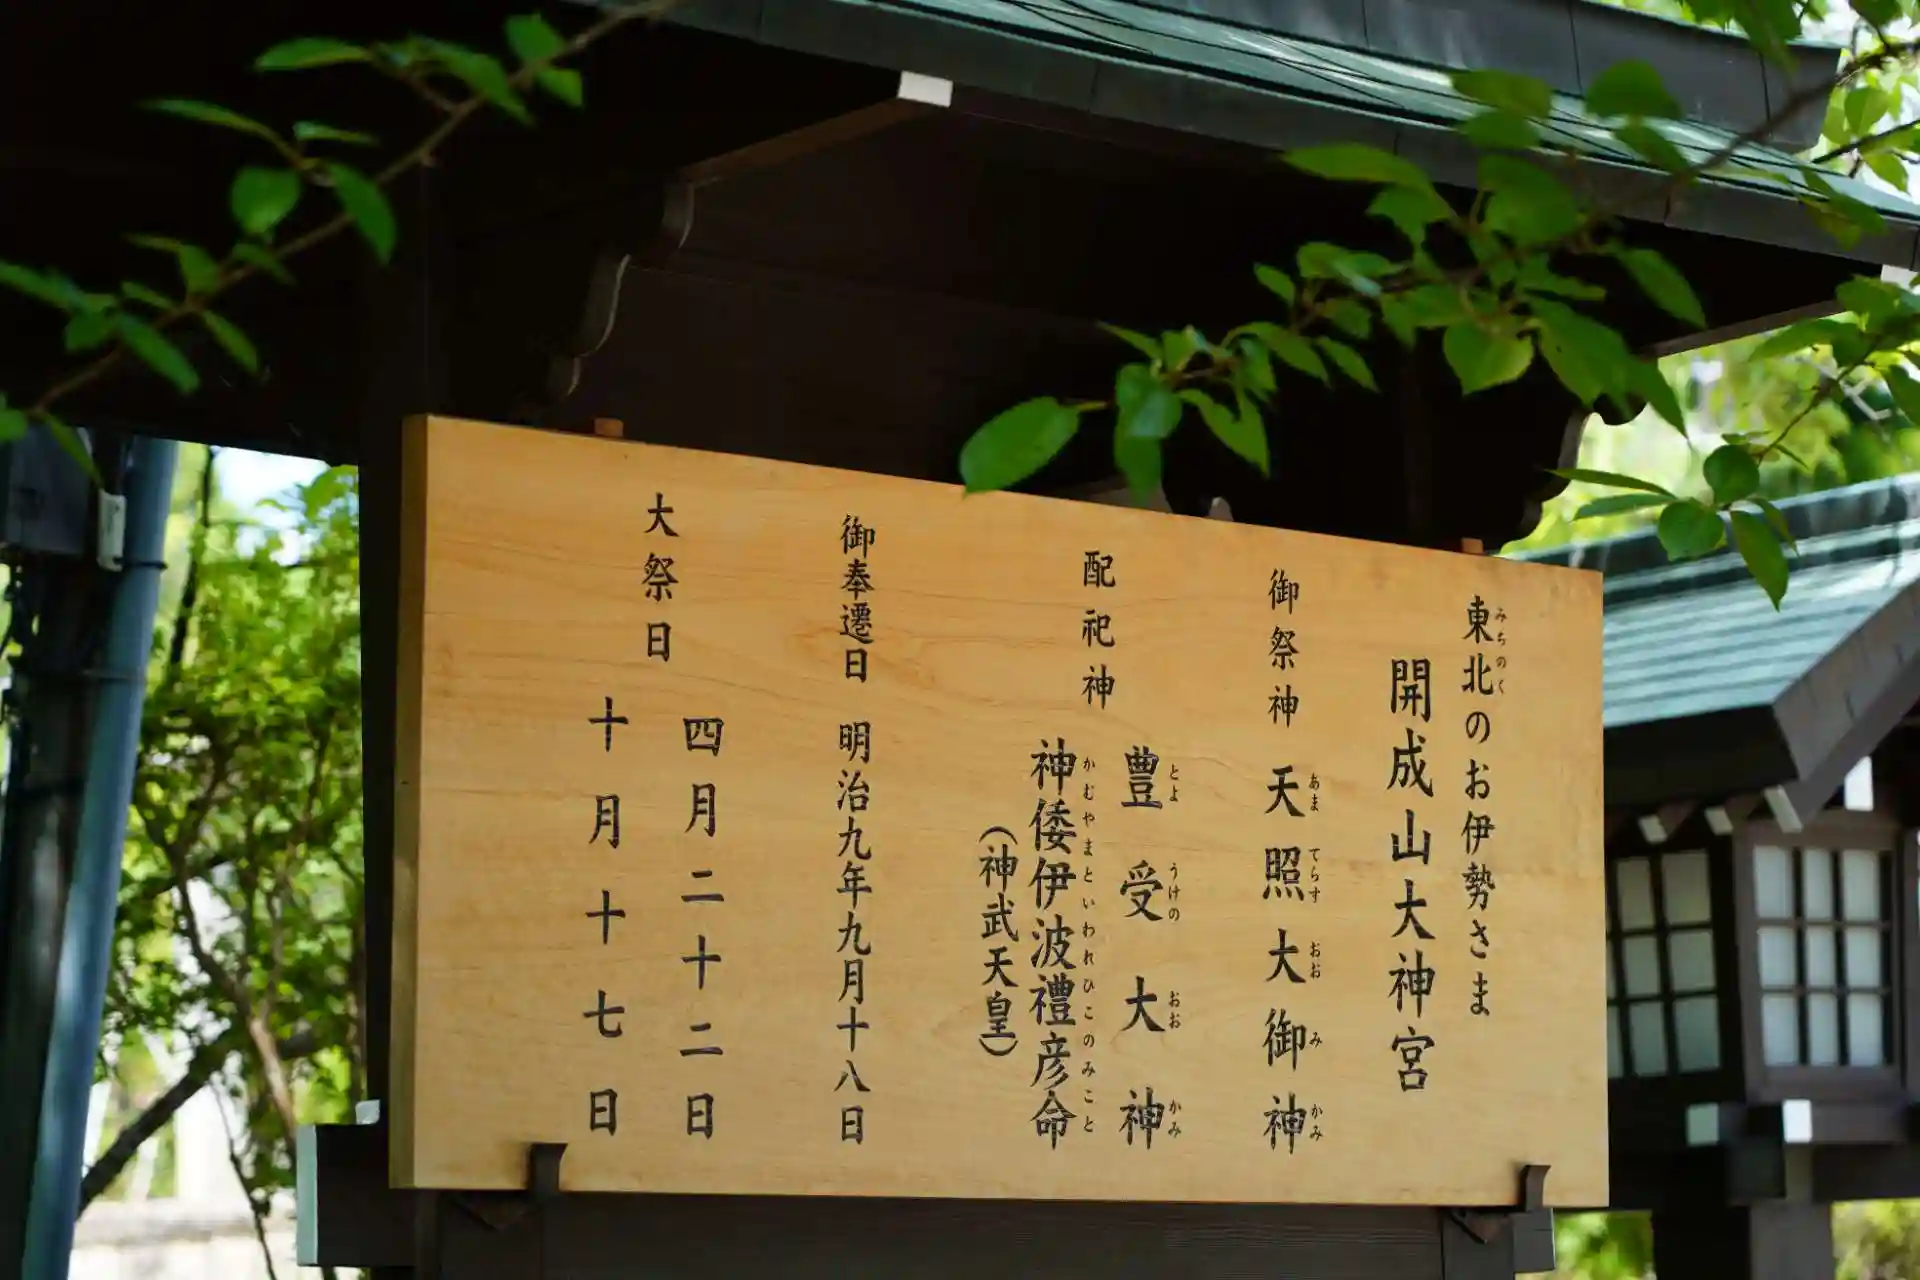 東北のお伊勢さま
みちのく
開成山大神宮
御祭神 天照大御神
あま てらす おお み かみ
配祀神
豊受大神
とよ うけの おお かみ
神倭伊波禮彦命
かむやまといわれひこのみこと
(神武天皇)
御奉遷日 明治九年九月十八日
大祭日
四月二十二日
十月十七日